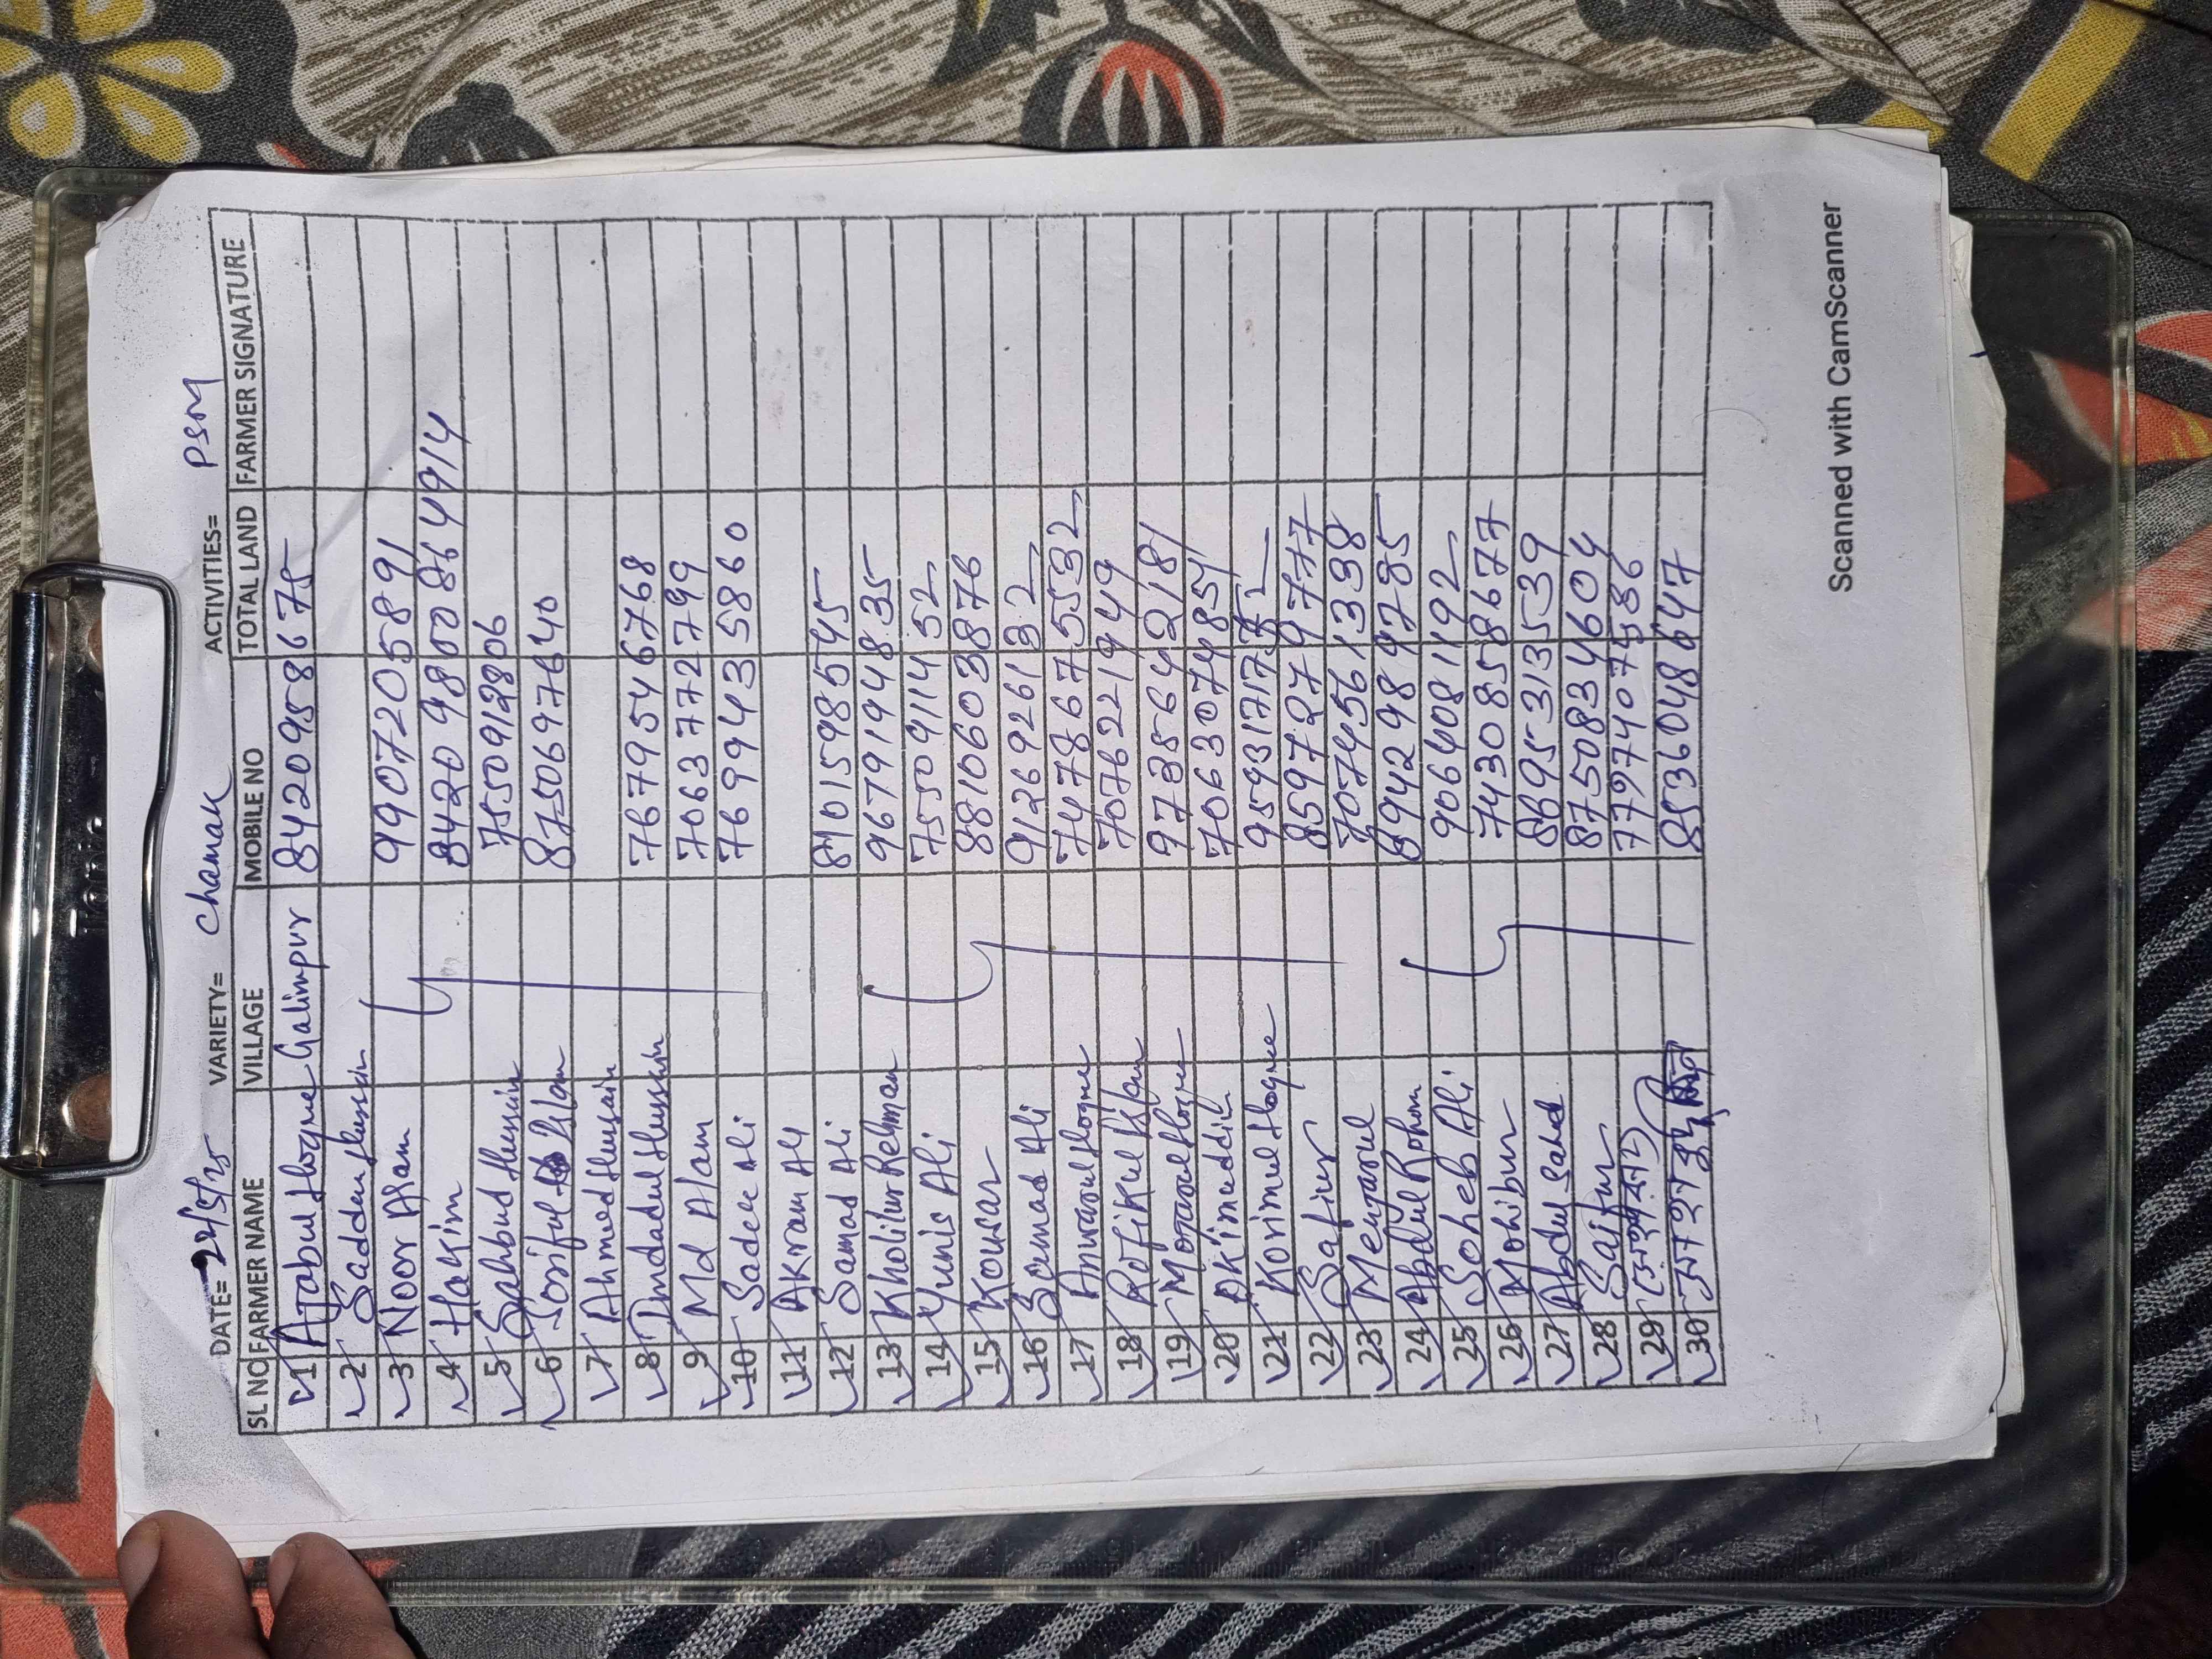 DATE= 24/5/25 VARIETY= Chamak ACTIVITIES= PSM
SL NO FARMER NAME VILLAGE MOBILE NO TOTAL LAND FARMER SIGNATURE
1 Ajabul Hoque Galimpur 8420958675
2 Saddam Hussain
3 Noor Alam 9907205891
4 Hakim
5 Sahbud Hussain 7550912806
6 8750697640
7 Ahmed Hussain
8 Imdadul Hussain 7679546768
9 Md Alam 7063772799
10 Sadek Ali 7699435860
11 Akram Ali
12 Samad Ali
13 Kholilur Rehman 9679194835
14 Yunis Ali 7550911452
15 Kousar 8810603876
16 Sammad Ali 9126926132
17 Anwarul Hoque 7478675532
18 Rofikul Islam 7076221949
19 Motarul Hoque 9735642181
20 Akimuddin 7063074851
21 Korimul Hoque
22 Safiur 8597279777
23 Menjarul 7074561338
24 Abdul Rohom 8942989785
25 Soheb Ali 9064081192
26 Mohibur 7430858677
27 Abdul Sahed 8695313539
28 Saifur 8750834604
29
30 8536048647
Scanned with CamScanner